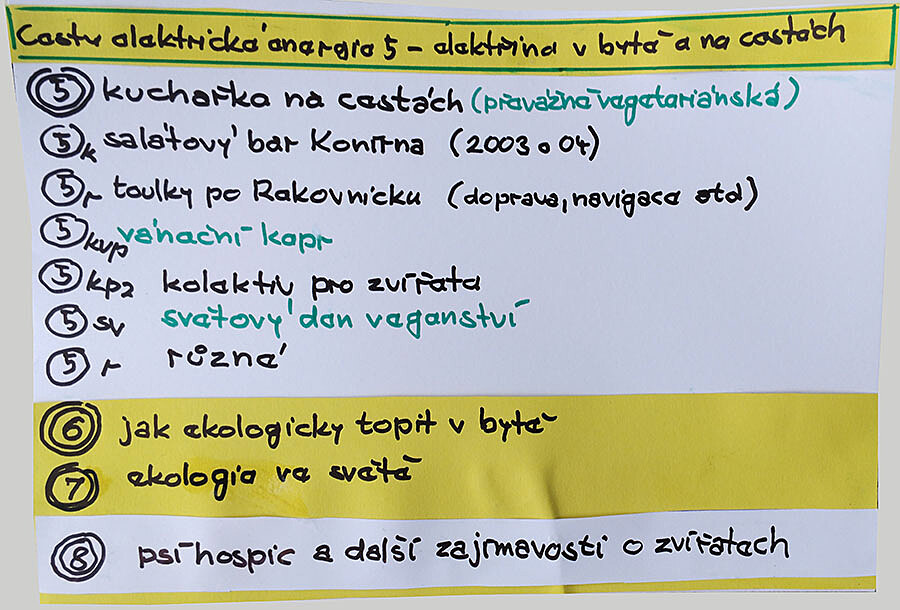 Cesty elektrické energie 5 - elektřina v bytě a na cestách
5 kuchařka na cestách (převážně vegetariánská)
5k salátový bar Konírna (2003 a 04)
5r toulky po Rakovnicku (doprava, navigace atd)
5kvp vánoční kapr
5 kpz kolektiv pro zvířata
5 sv světový den veganství
5 r různé
6 jak ekologicky topit v bytě
7 ekologie ve světě
8 psí hospic a další zajímavosti o zvířatech